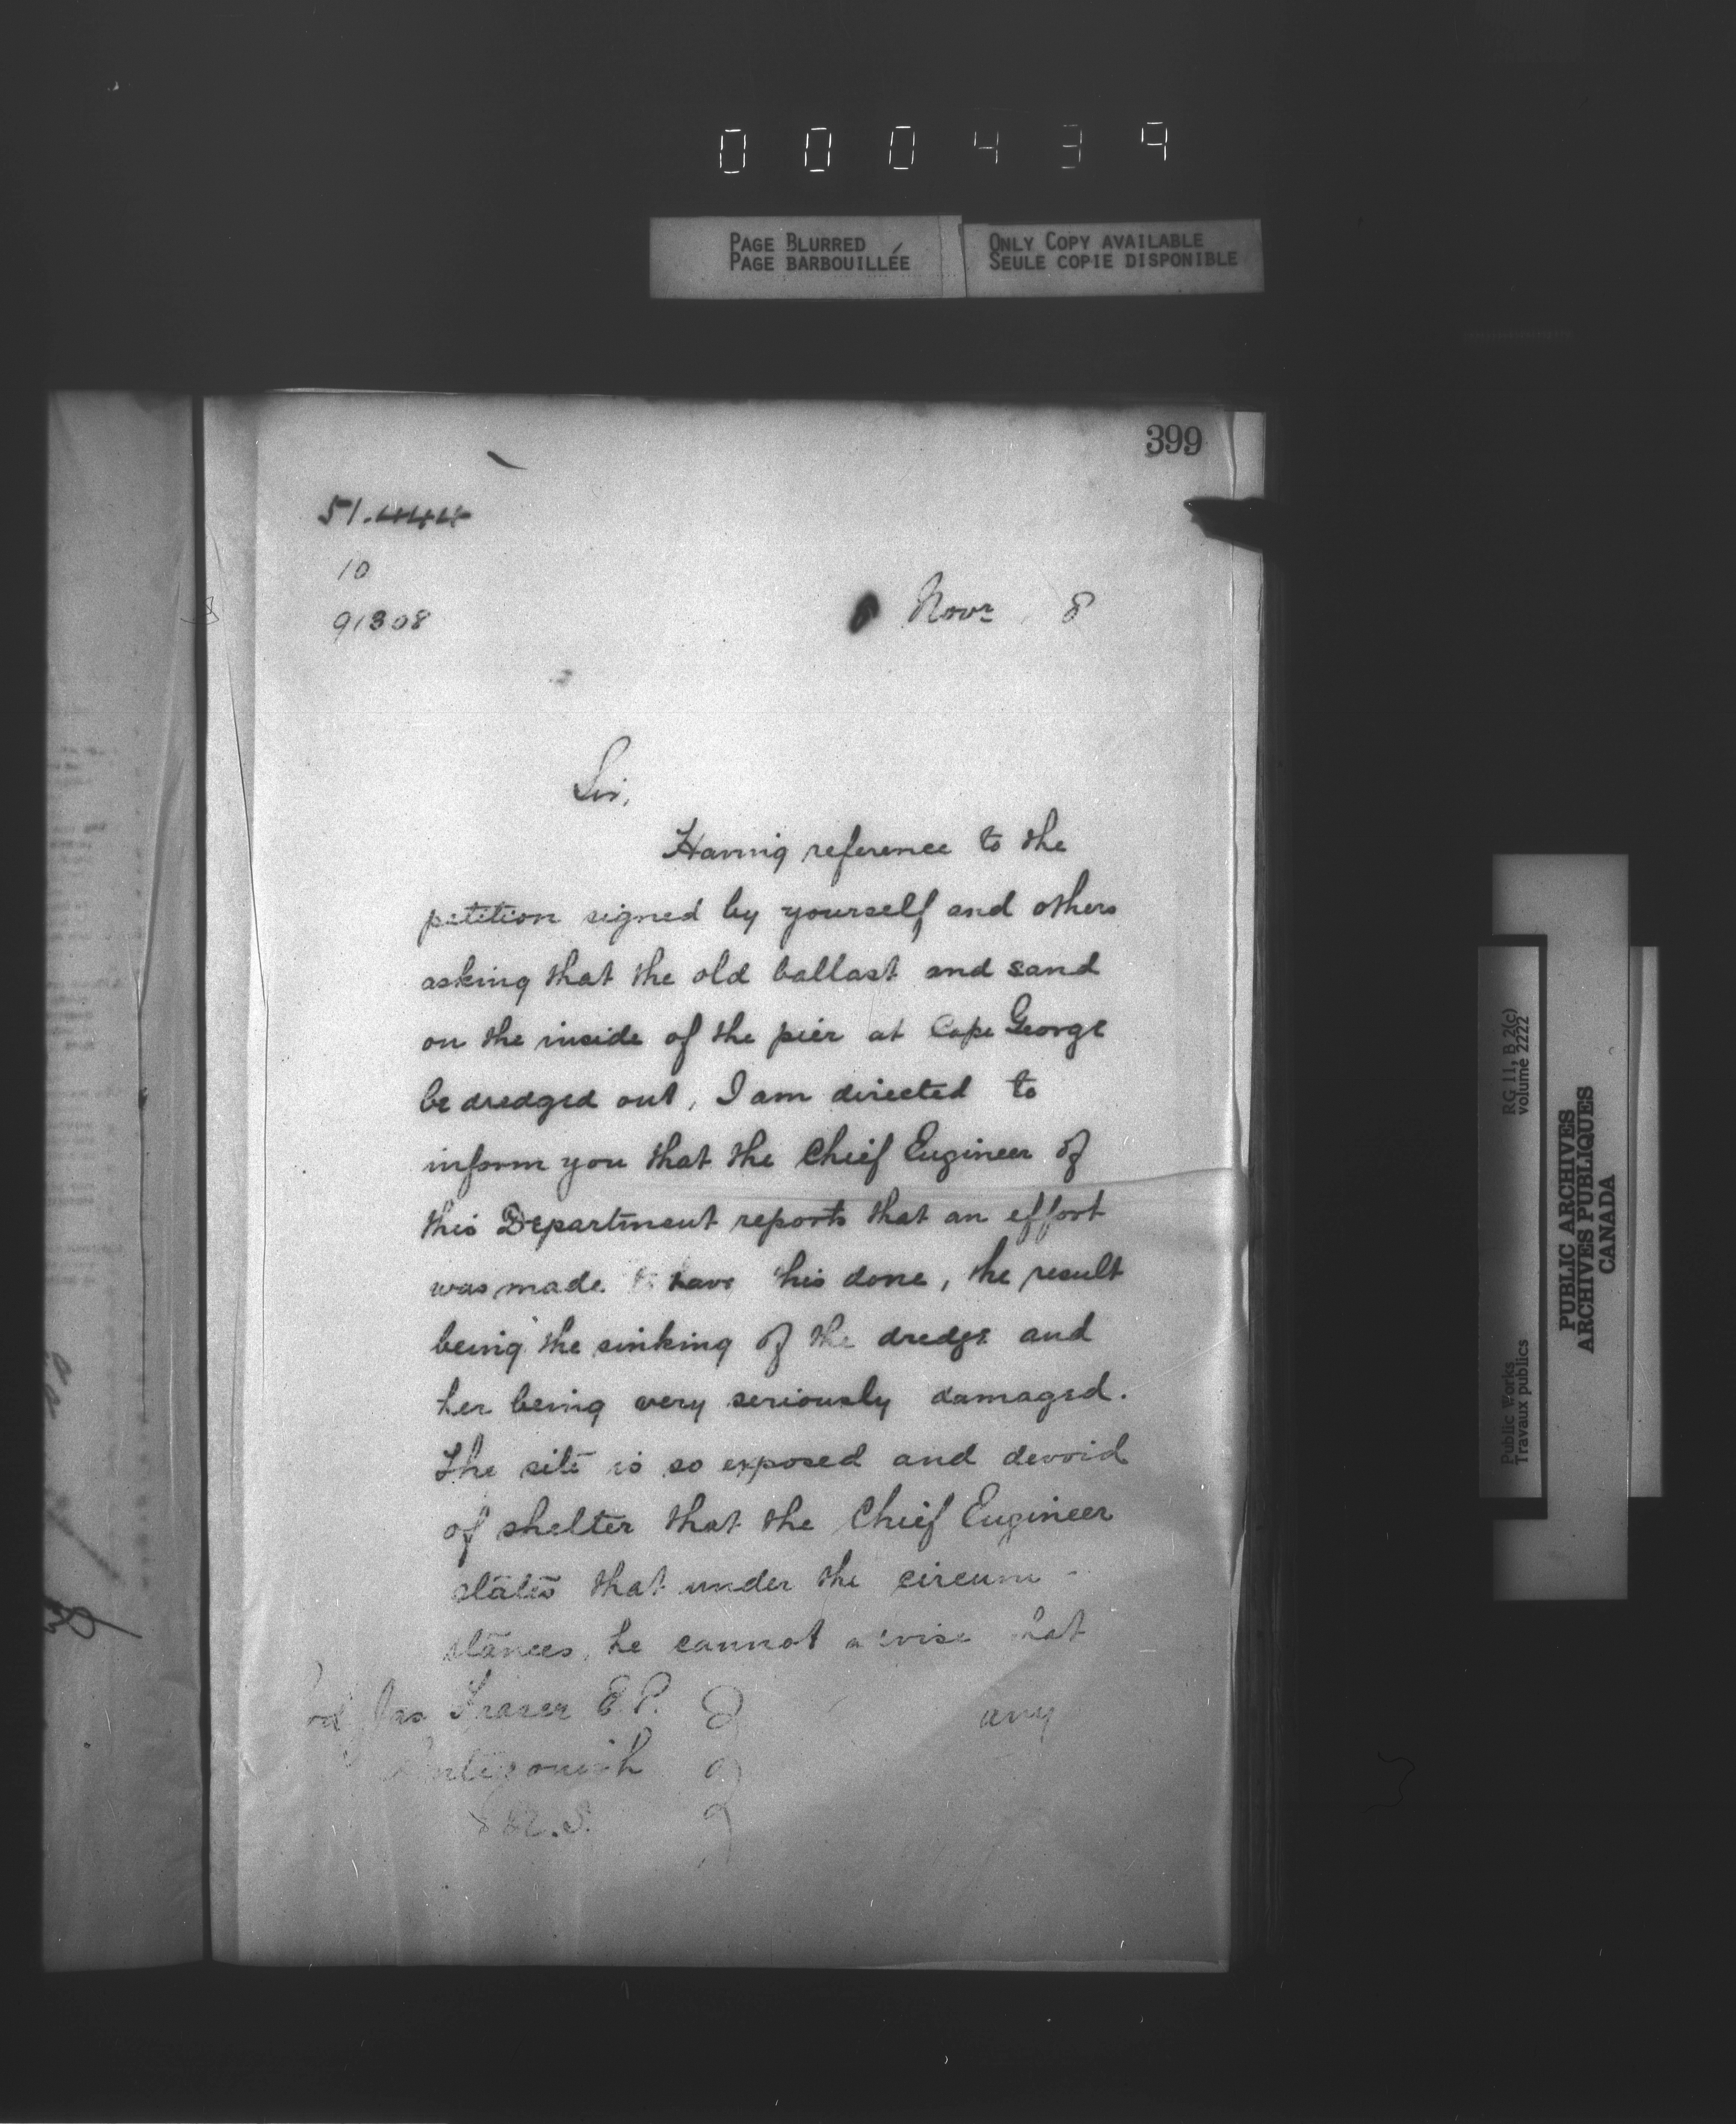 000439
PAGE BLURRED
PAGE BARBOUILLÉE
ONLY COPY AVAILABLE
SEULE COPIE DISPONIBLE
399
51.444
10
91308
Novr 8
Sir,
Having reference to the
petition signed by yourself and others
asking that the old ballast and sand
on the inside of the pier at Cape George
be dredged out, I am directed to
inform you that the Chief Engineer of
this Department reports that an effort
was made to have this done, the result
being the sinking of the dredge and
her being very seriously damaged.
The site is so exposed and devoid
of shelter that the Chief Engineer
states that under the circum-
stances, he cannot advise that
any
Jas Fraser P.P.
Antigonish
N.S.
RG 11, B 2(c)
volume 2222
Public Works
Travaux publics
PUBLIC ARCHIVES
ARCHIVES PUBLIQUES
CANADA